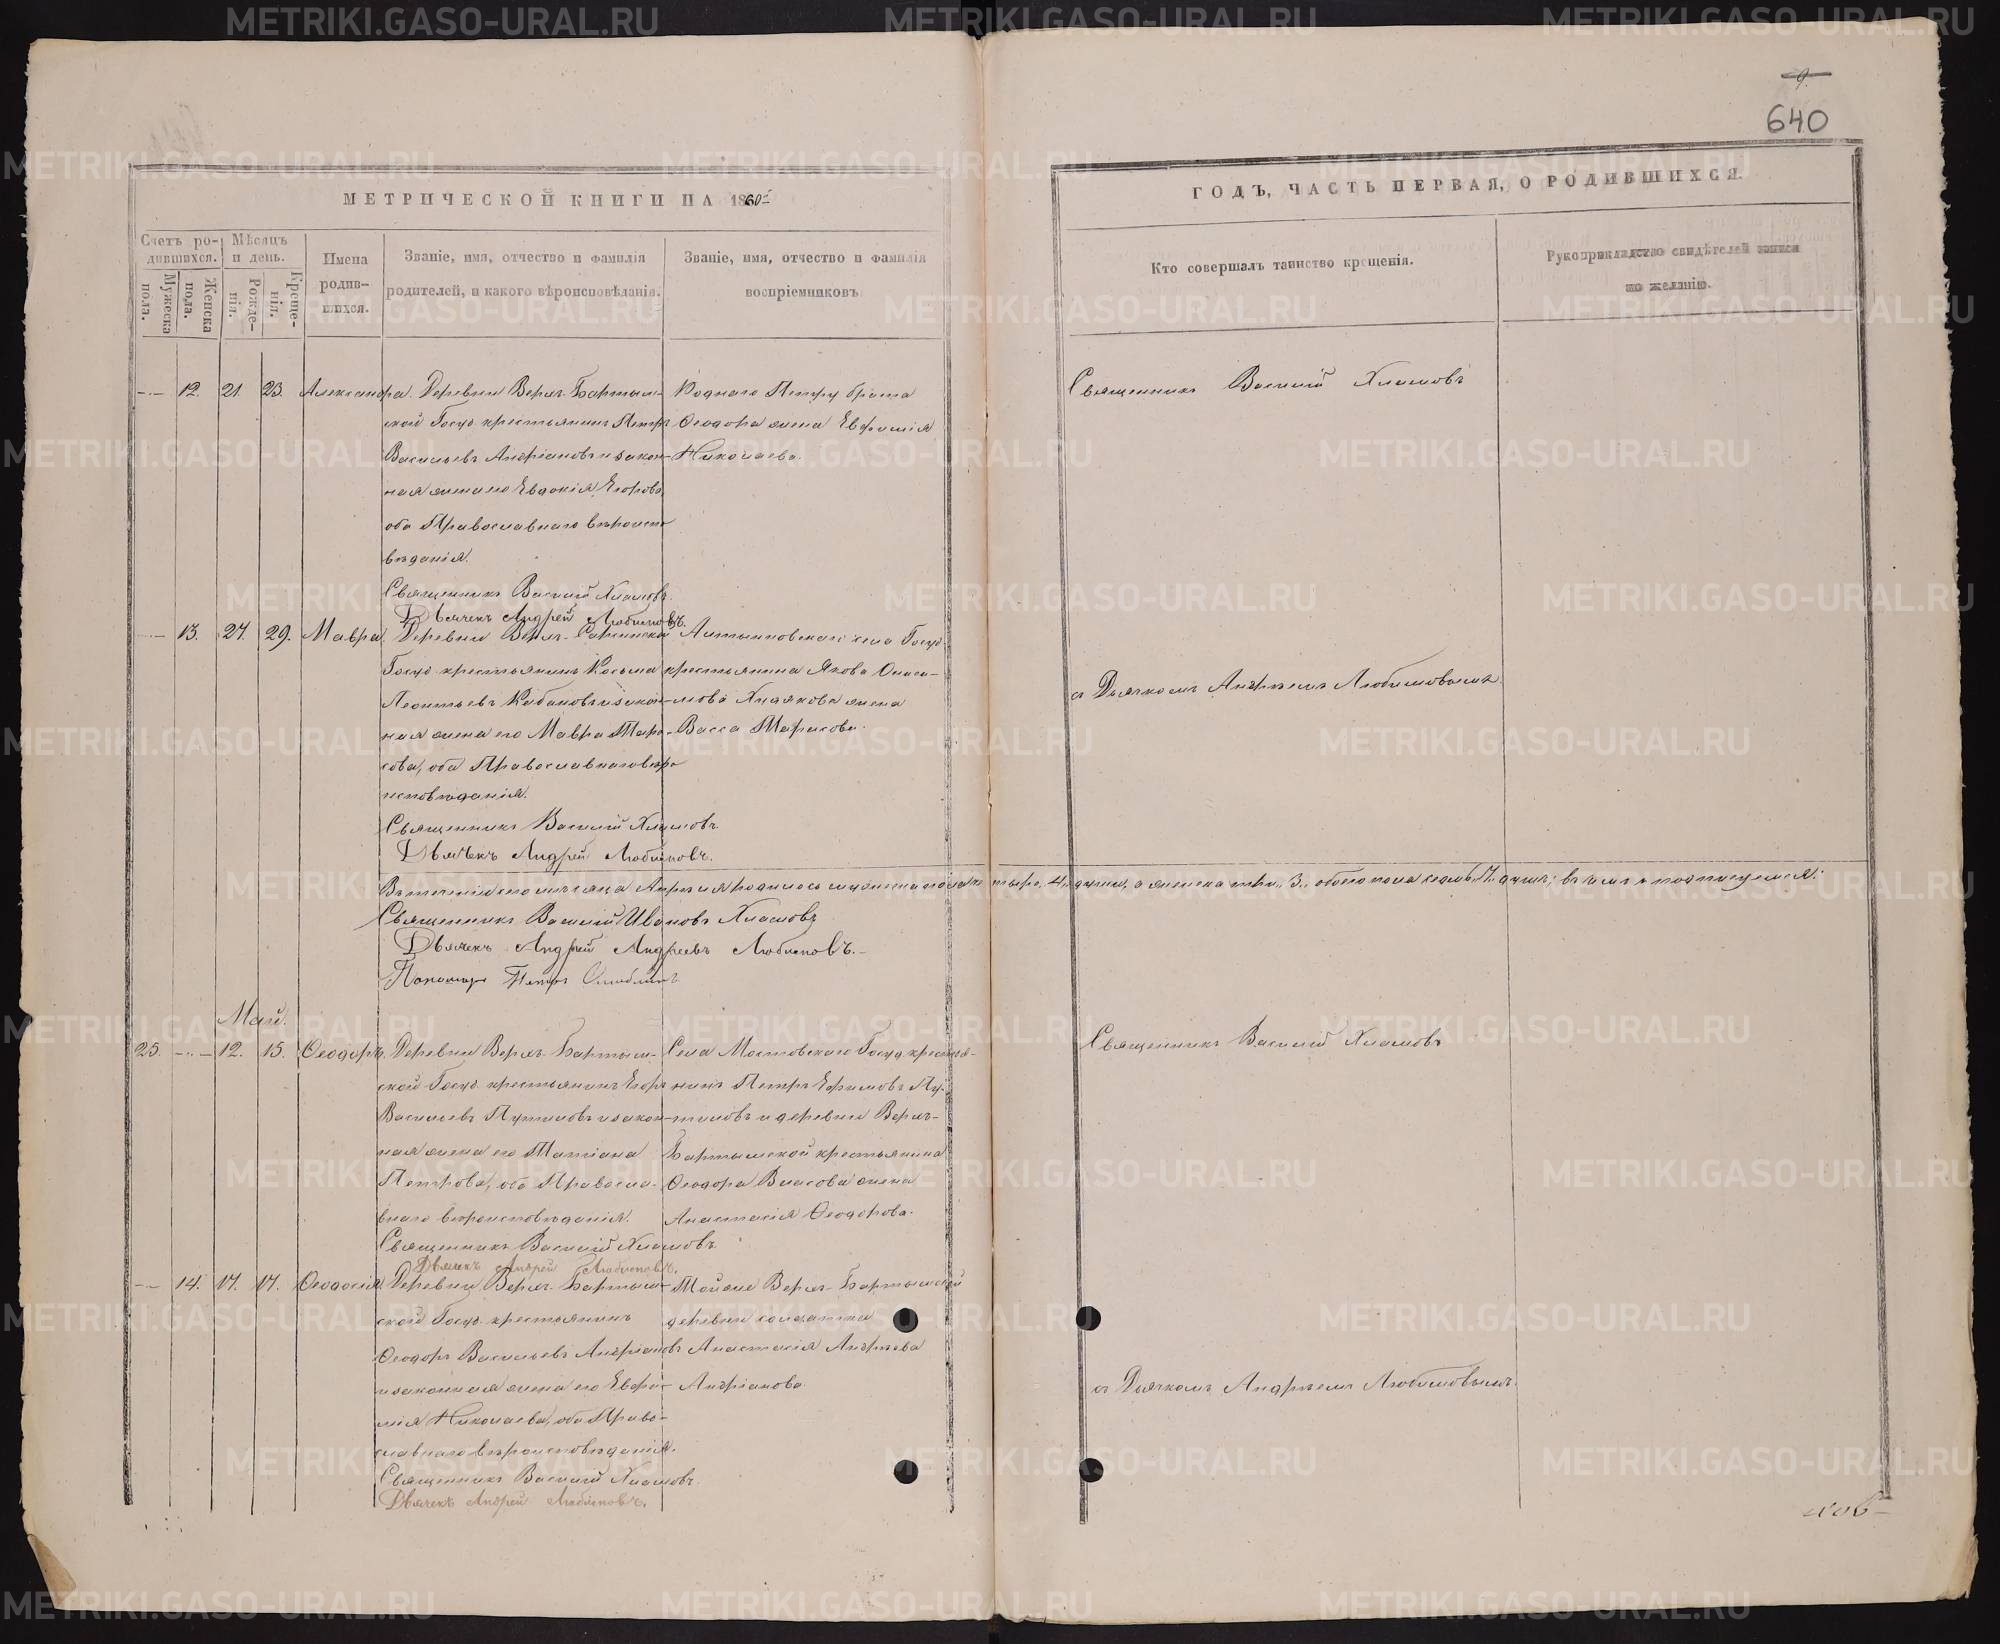 9.
640
МЕТРИЧЕСКОЙ КНИГИ НА 1860й
ГОДЪ, ЧАСТЬ ПЕРВАЯ, О РОДИВШИХСЯ.
Счетъ родившихся.
Мужеска пола.
Женска пола.
Мѣсяцъ и день.
Рожденія.
Крещенія.
Имена родившихся.
Званіе, имя, отчество и фамилія
родителей, и какого вѣроисповѣданія.
Званіе, имя, отчество и фамилія
воспріемниковъ
Кто совершалъ таинство крещенія.
Рукоприкладство свидѣтелей записи
по желанію.
12. 21. 23. Александра. Деревни Верх. Бартым-
ской Госуд крестьянинъ Петръ
Васильевъ Андріановъ и закон-
ная жена его Евдокія Егорова,
оба Православнаго вѣроиспо
вѣданія.
Священникъ Василій Хламовъ.
Дьячекъ Андрей Любимовъ.
Роднаго Петру брата
Ѳеодора жена Евфимія
Николаева.
Священникъ Василій Хламовъ
13. 27. 29. Мавра. Деревни Верх-
Госуд крестьянинъ Косьма
Леонтьевъ Кабановъ и закон-
ная жена его Мавра Тара-
сова, оба Православнаго вѣро
исповѣданія.
Священникъ Василій Хламовъ.
Дьячекъ Андрей Любимовъ.
Алтыновскаго села Госуд.
крестьянина Якова
Худякова жена
Васса Тарасова.
съ Дьячкомъ Андреемъ Любимовымъ.
Въ теченіи сего мѣсяца Апрѣля родилось мужеска пола четыре, 4, души, а женска три, 3, обоего пола седмь, 7, душъ; въ чемъ и подписуемся:
Священникъ Василій Ивановъ Хламовъ
Дьячекъ Андрей Андреевъ Любимовъ.
Пономарь Петръ
Май.
25. 12. 15. Ѳеодоръ. Деревни Верх. Бартым-
ской Госуд. крестьянинъ Егоръ
Васильевъ Путиловъ и закон-
ная жена его Татіана
Петрова, оба Правосла-
внаго вѣроисповѣданія.
Священникъ Василій Хламовъ.
Дьячекъ Андрей Любимовъ.
Села Мостовскаго Госуд крестья-
нинъ Петръ Ефимовъ Пу-
тиловъ и деревни Верх-
Бартымской крестьянина
Ѳеодора Власова жена
Анастасія Ѳеодорова.
Священникъ Василій Хламовъ
14. 17. 17. Ѳеодосія. Деревни Верх. Бартым-
ской Госуд. крестьянинъ
Ѳеодоръ Васильевъ Андріановъ
и законная жена его Евфи-
мія Николаева, оба Право-
славнаго вѣроисповѣданія.
Священникъ Василій Хламовъ.
Дьячекъ Андрей Любимовъ.
Тойже Верх-Бартымской
деревни солдатка
Анастасія Андреева
Андріанова.
съ Дьячкомъ Андреемъ Любимовымъ.
METRIKI.GASO-URAL.RU